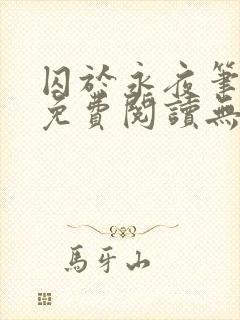 囚於永夜筆
免費閱讀無
馬牙山